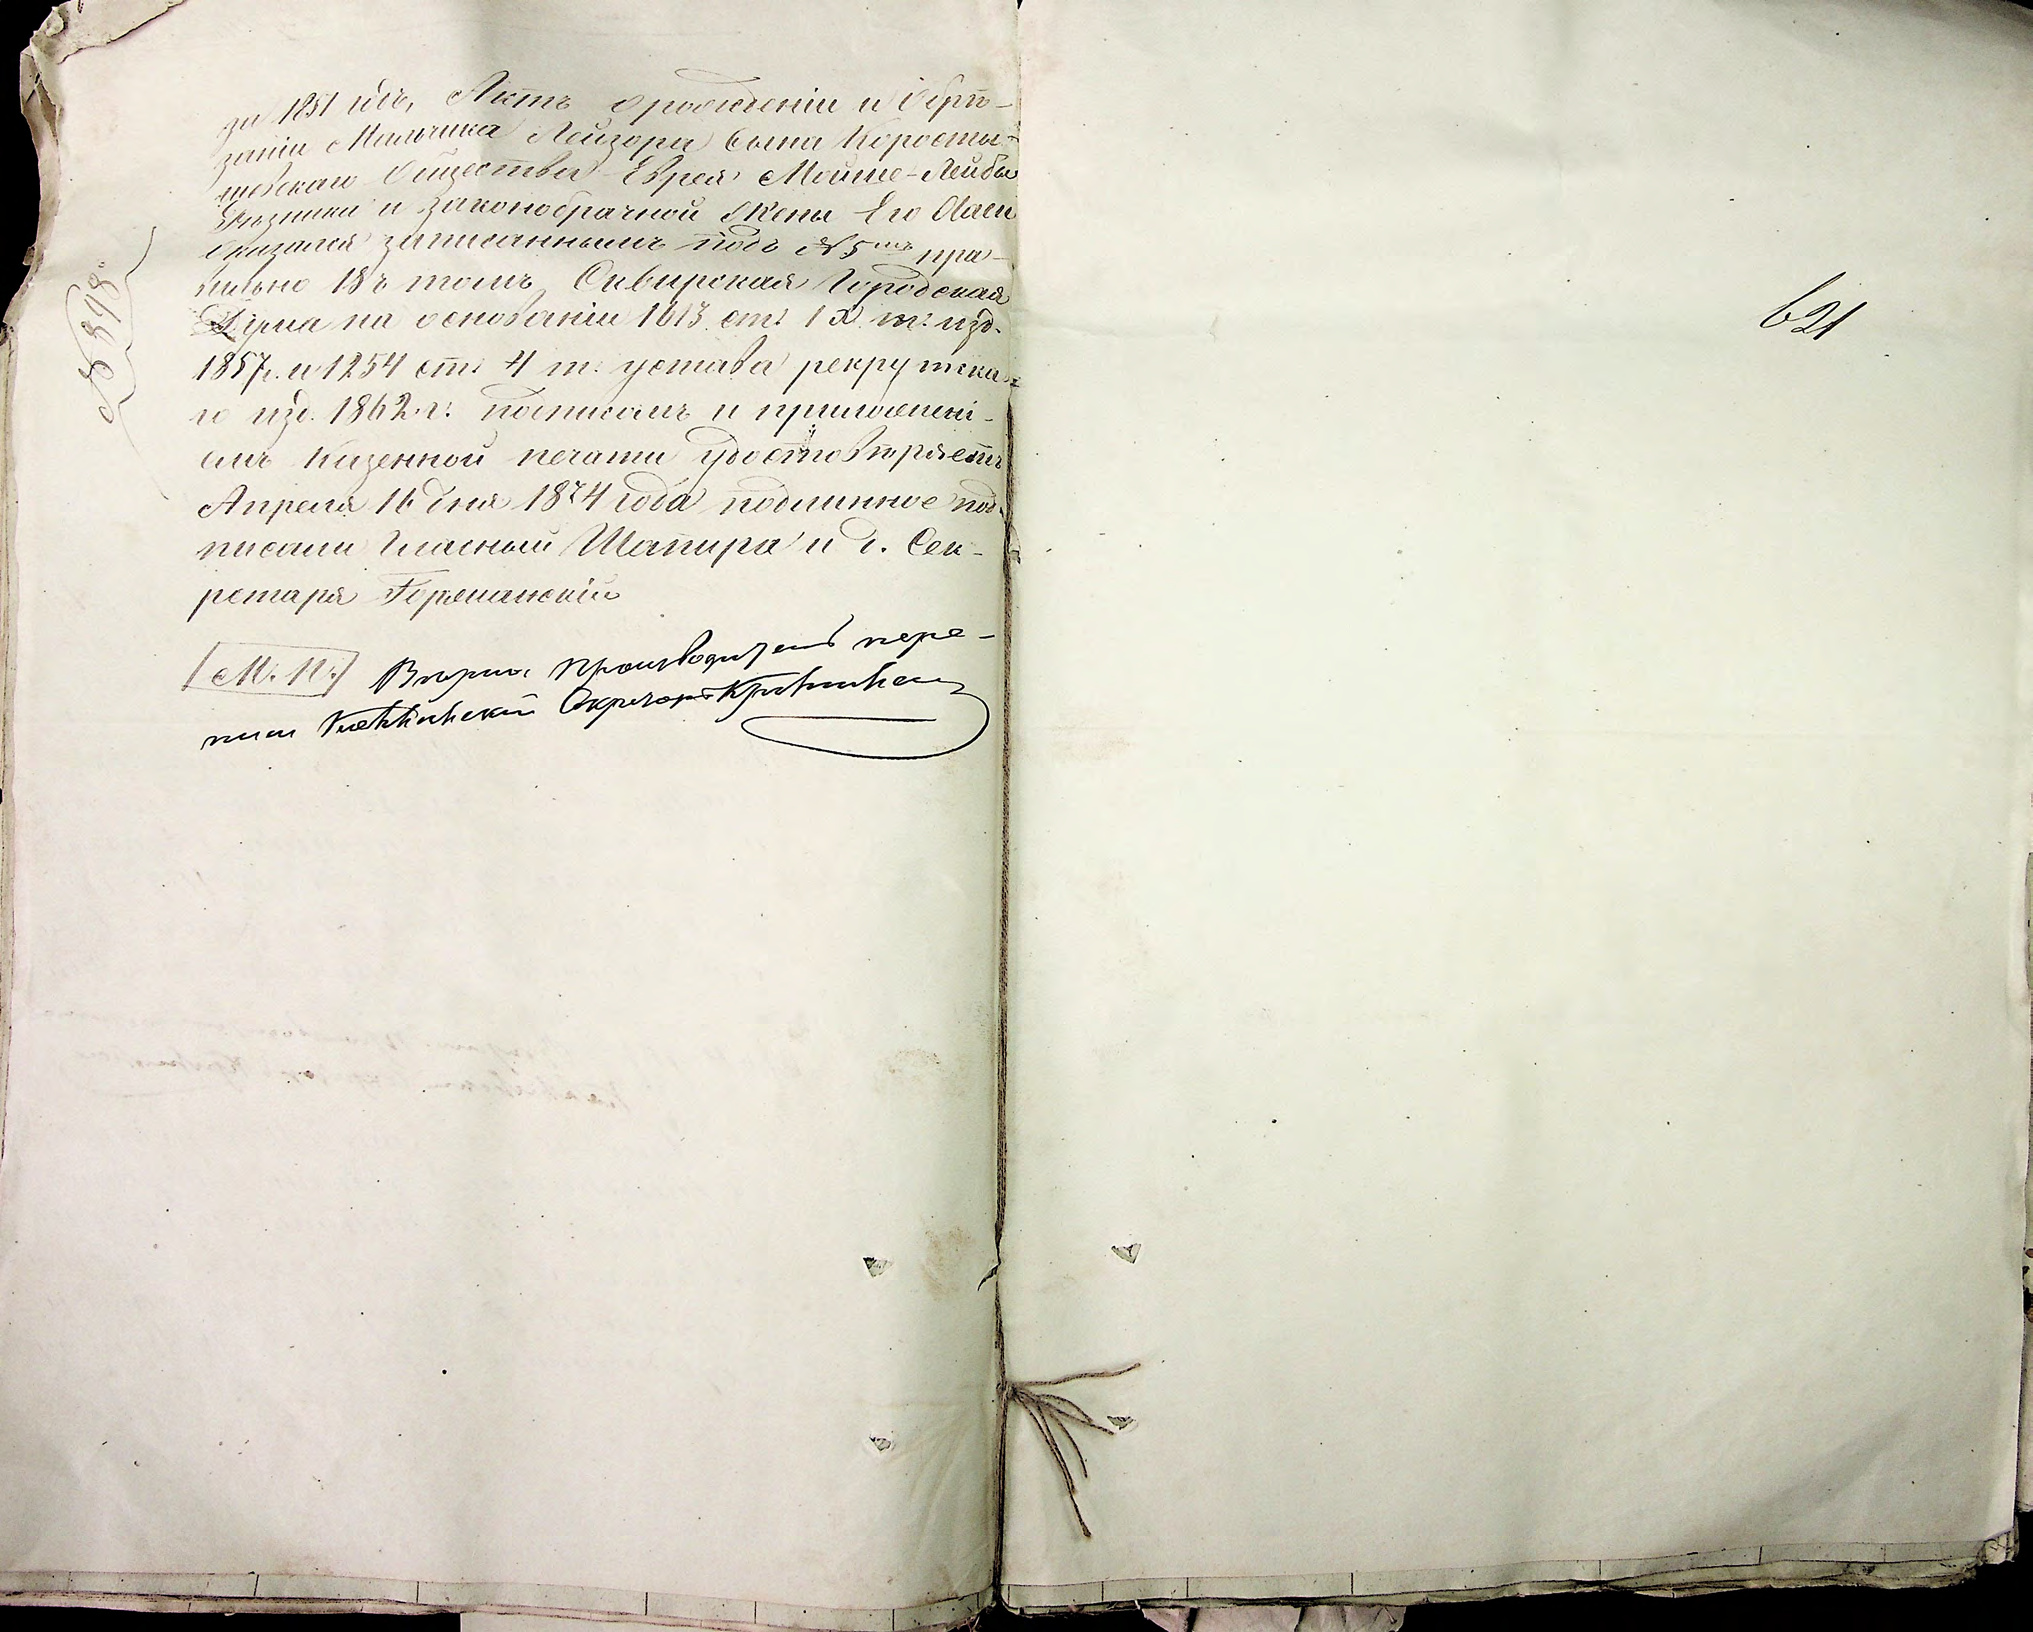 за 1851 годъ, Актъ о рожденіи и обрѣ-
заніи Мальчика Лейзора сына Коросты-
шевскаго Общества Еврея Мошко-Лейбы
и законобрачной жены Его
оказался записаннымъ подъ №5мъ пра-
вильно въ томъ Сквирская Городская
Дума на основаніи 1613 ст: IX т: изд.
1857г. и 1254 ст: 4 т: устава рекрутска-
го изд. 1862 г: подписомъ и приложені-
емъ Казенной печати удостовѣряетъ
Апреля 16 дня 1874 года подлинное под-
писали Гласный Шапира и д. Сек-
ретаря
М. П. Вѣрно: Производитель пере-
писи Секретарь
№ 898.
621